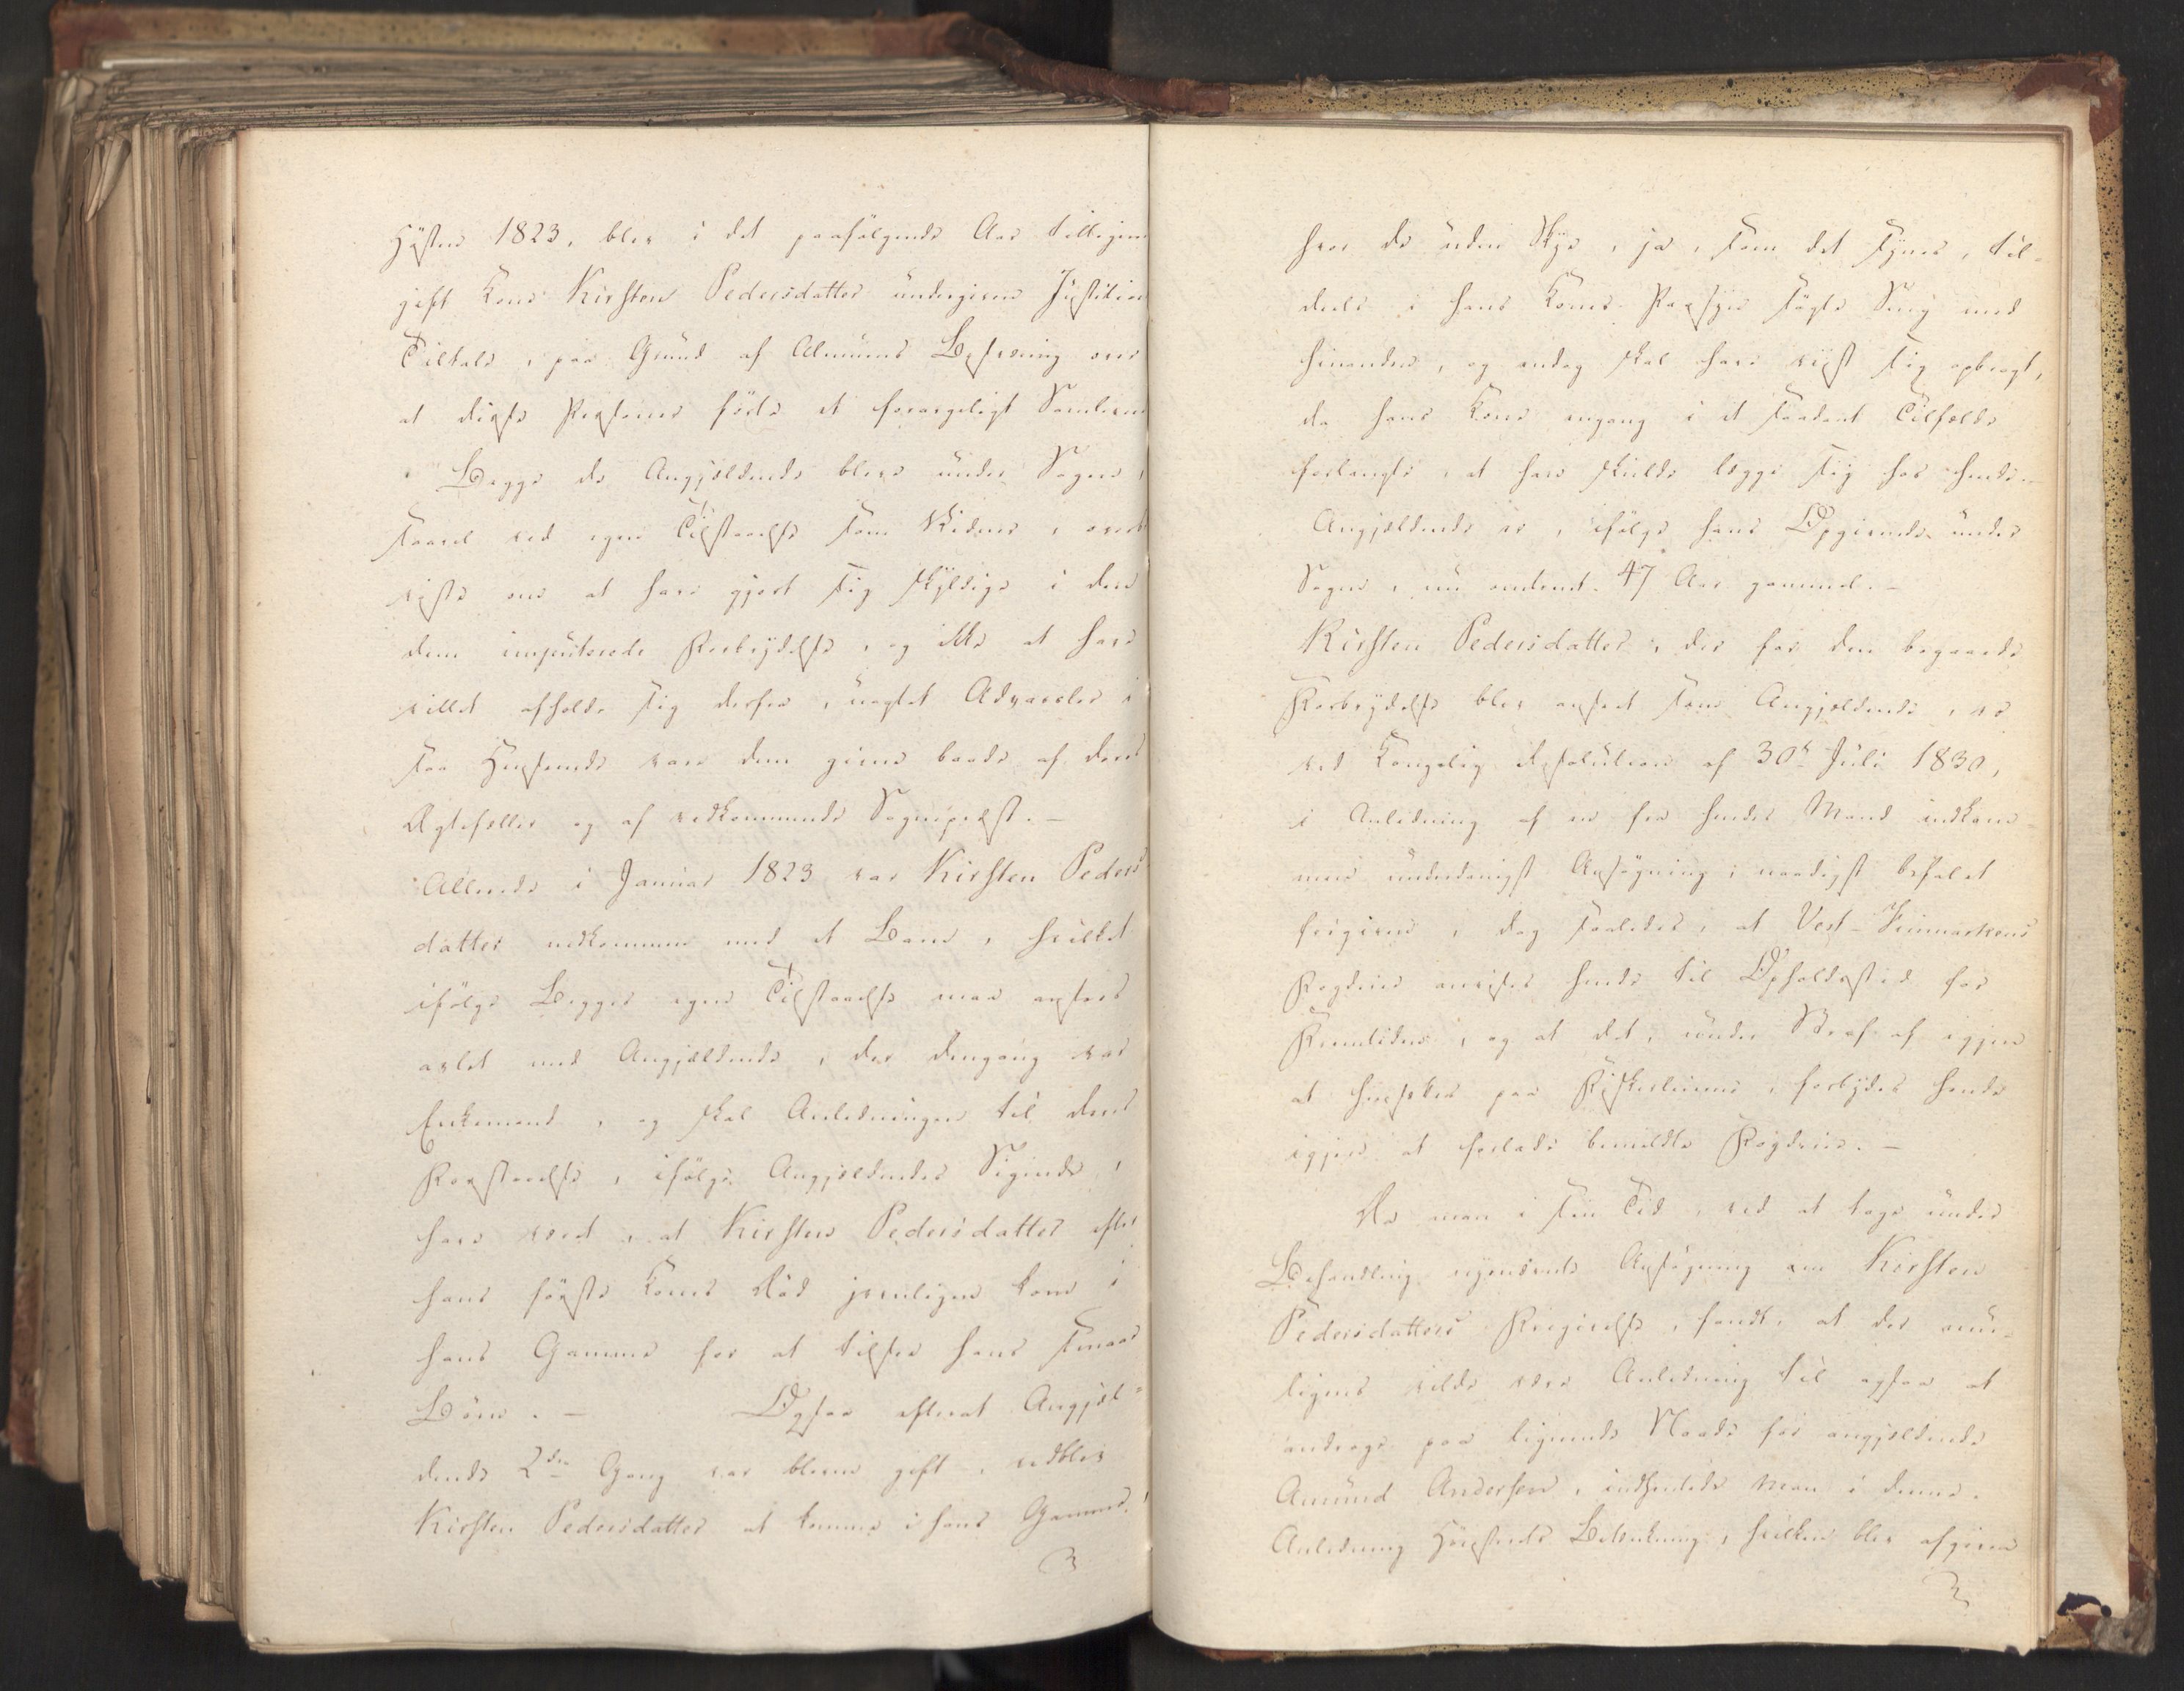 Høsten 1823, blev i det paafølgende Aar tilligem
gift Kone Kirsten Pedersdatter undergiven Justitiens
Tiltale, paa Grund af Almuens Besværing over
at disse Personer førte et forargeligt Samlevne
Begge de Angjældende bleve under Sagen,
saavel ved egen Tilstaaelse som Vidner, over¬
viiste om at have gjort sig skyldige i den
dem imputerede Forbrydelse, og ikke at have
villet afholde sig derfra, uagtet Advarsler i
saa Henseende vare dem givne baade af deres
Ægtefæller og af vedkommende Sognepræst. -
Allerede i Januar 1823 var Kirsten Peders
datter nedkommen med et Barn, hvilket
ifølge Begges egen Tilstaaelse maa ansees
avlet med Angjældende, der dengang var
Enkemand, og skal Anledningen til denne
Forstaaelse, ifølge Angjældendes Sigende,
have været, at Kirsten Pedersdatter efter
hans første Kones Død jevnligen kom i
hans Gamme for at tilsee hans smaae
Børn. - Ogsaa efterat Angjæl=
dende 2den Gang var bleven gift, vedblev
Kirsten Pedersdatter at komme i hans Gamme,
hvor de uden Sky, ja, som det synes, til¬
deels i hans Kones Paasyn søgte Seng med
hinanden, og endog skal han viist sig opbragt,
da hans Kone engang i et saadant Tilfælde
forlangte, at han skulde lægge sig hos hende.
Angjældende er, ifølge hans Opgivende under
Sagen, nu omtrent 47 Aar gammel. -
Kirsten Pedersdatter, der for den begaaede
Forbrydelse blev anseet som Angjældende, er
ved Kongelig Resolution af 30te Juli 1830,
i Anledning af en fra hendes Mand indkom¬
men underdanigst Ansøgning, naadigst befalet
frigiven, dog saaledes, at Vest-Finmarkens
Fogderie anvises hende til Opholdssted for
Fremtiden, og at det, under Straf af igjen
at hensættes paa Fiskerleierne, forbydes hende
igjen at forlade bemeldte Fogderie. -
Da man i sin Tid, ved at tage under
Behandling nysnævnte Ansøgning om Kirsten
Pedersdatters Frigivelse, fandt, at der rime¬
ligens vilde være Anledning til ogsaa at
andrage paa lignende Naade for angjældende
Amund Andersen, indhentede man i denne
Anledning Høiesterets Betænkning, hvilken blev afgiven